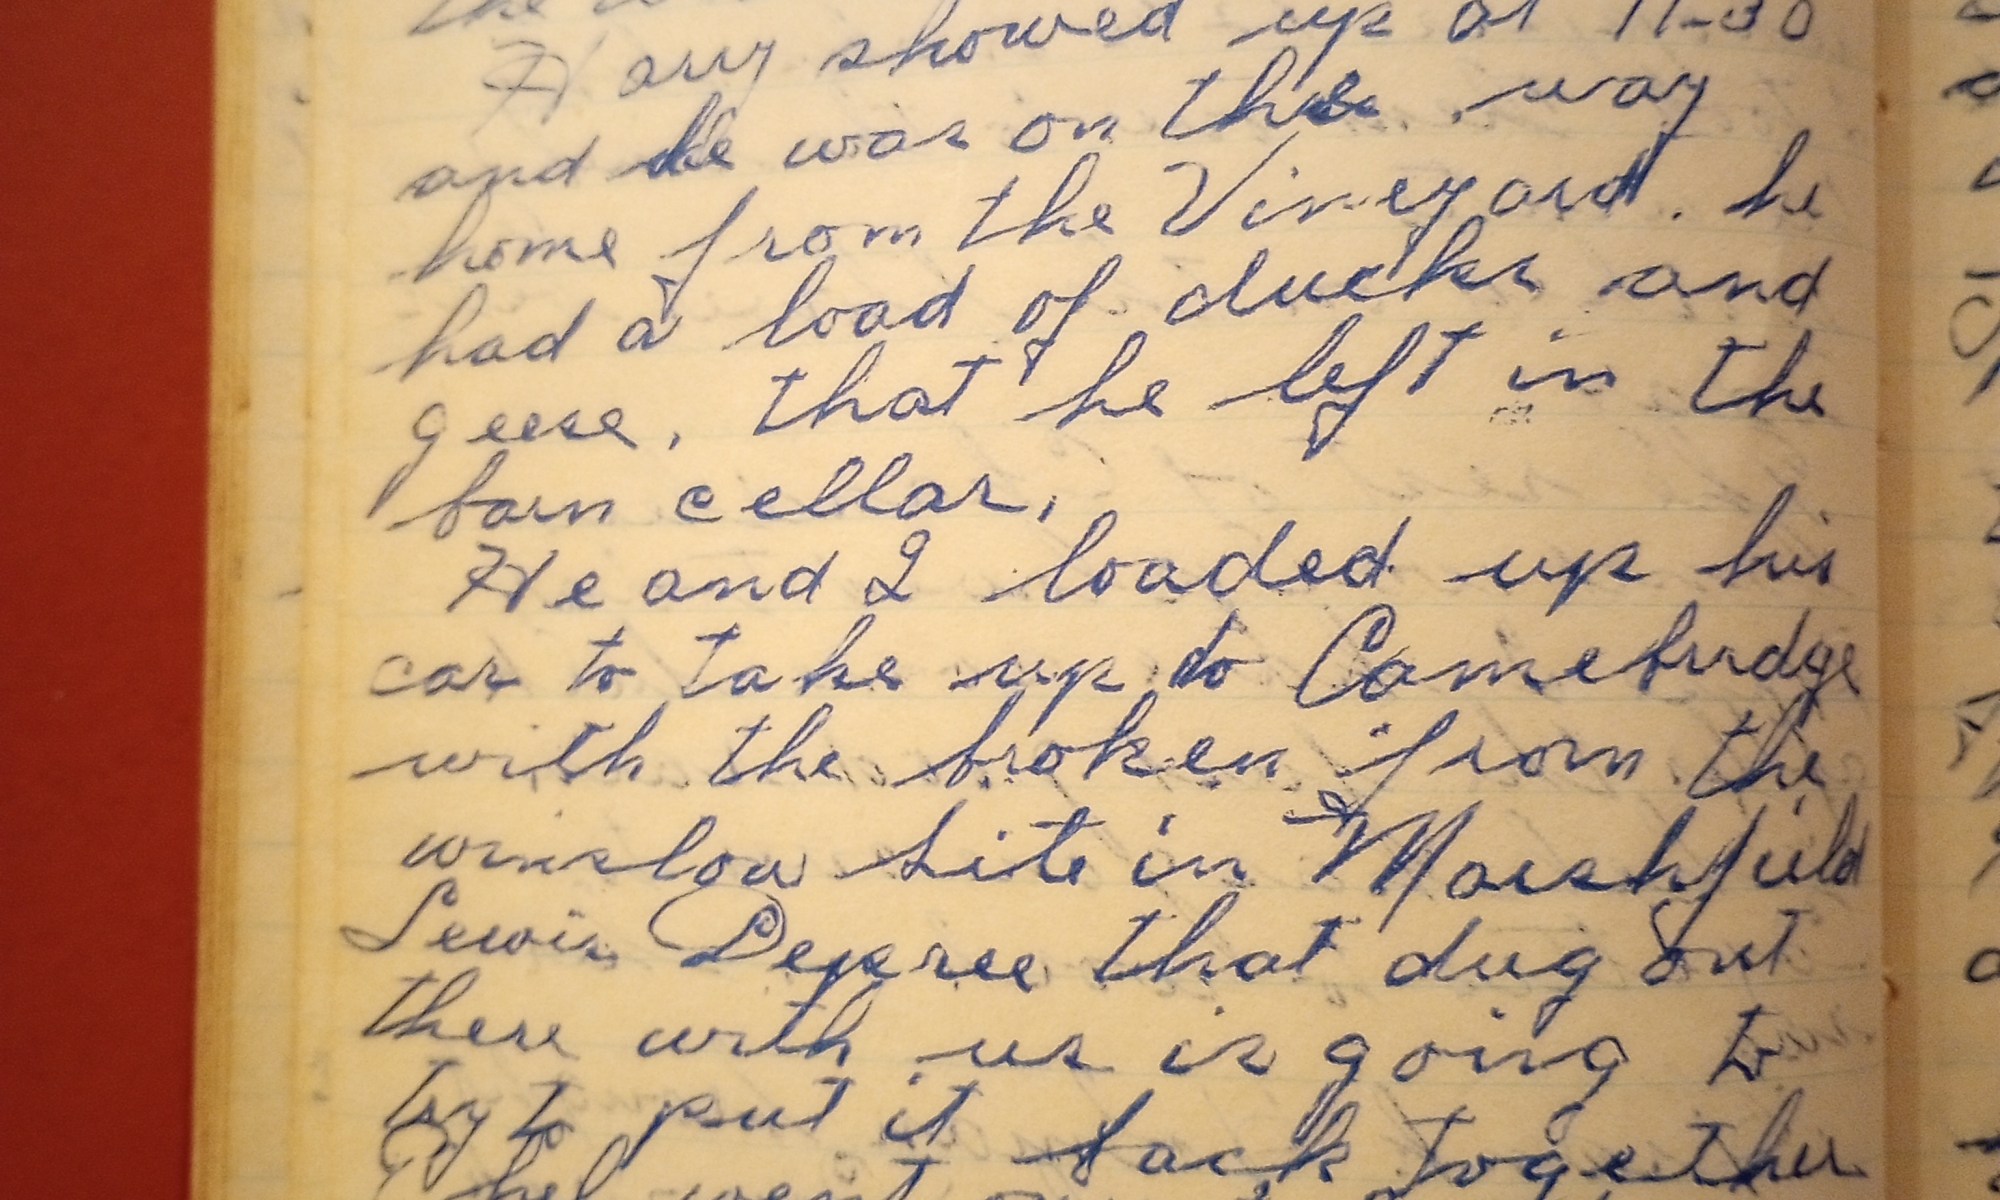 the
Harry showed up at 11-30
and he was on the way
home from the Vineyard. he
had a load of ducks and
geese, that he left in the
barn cellar,
He and I loaded up his
car to take up to Camebridge
with the broken from the
winslow site in Marshfield
Lewis that dug out
there with us is going to
try to put it back together
went